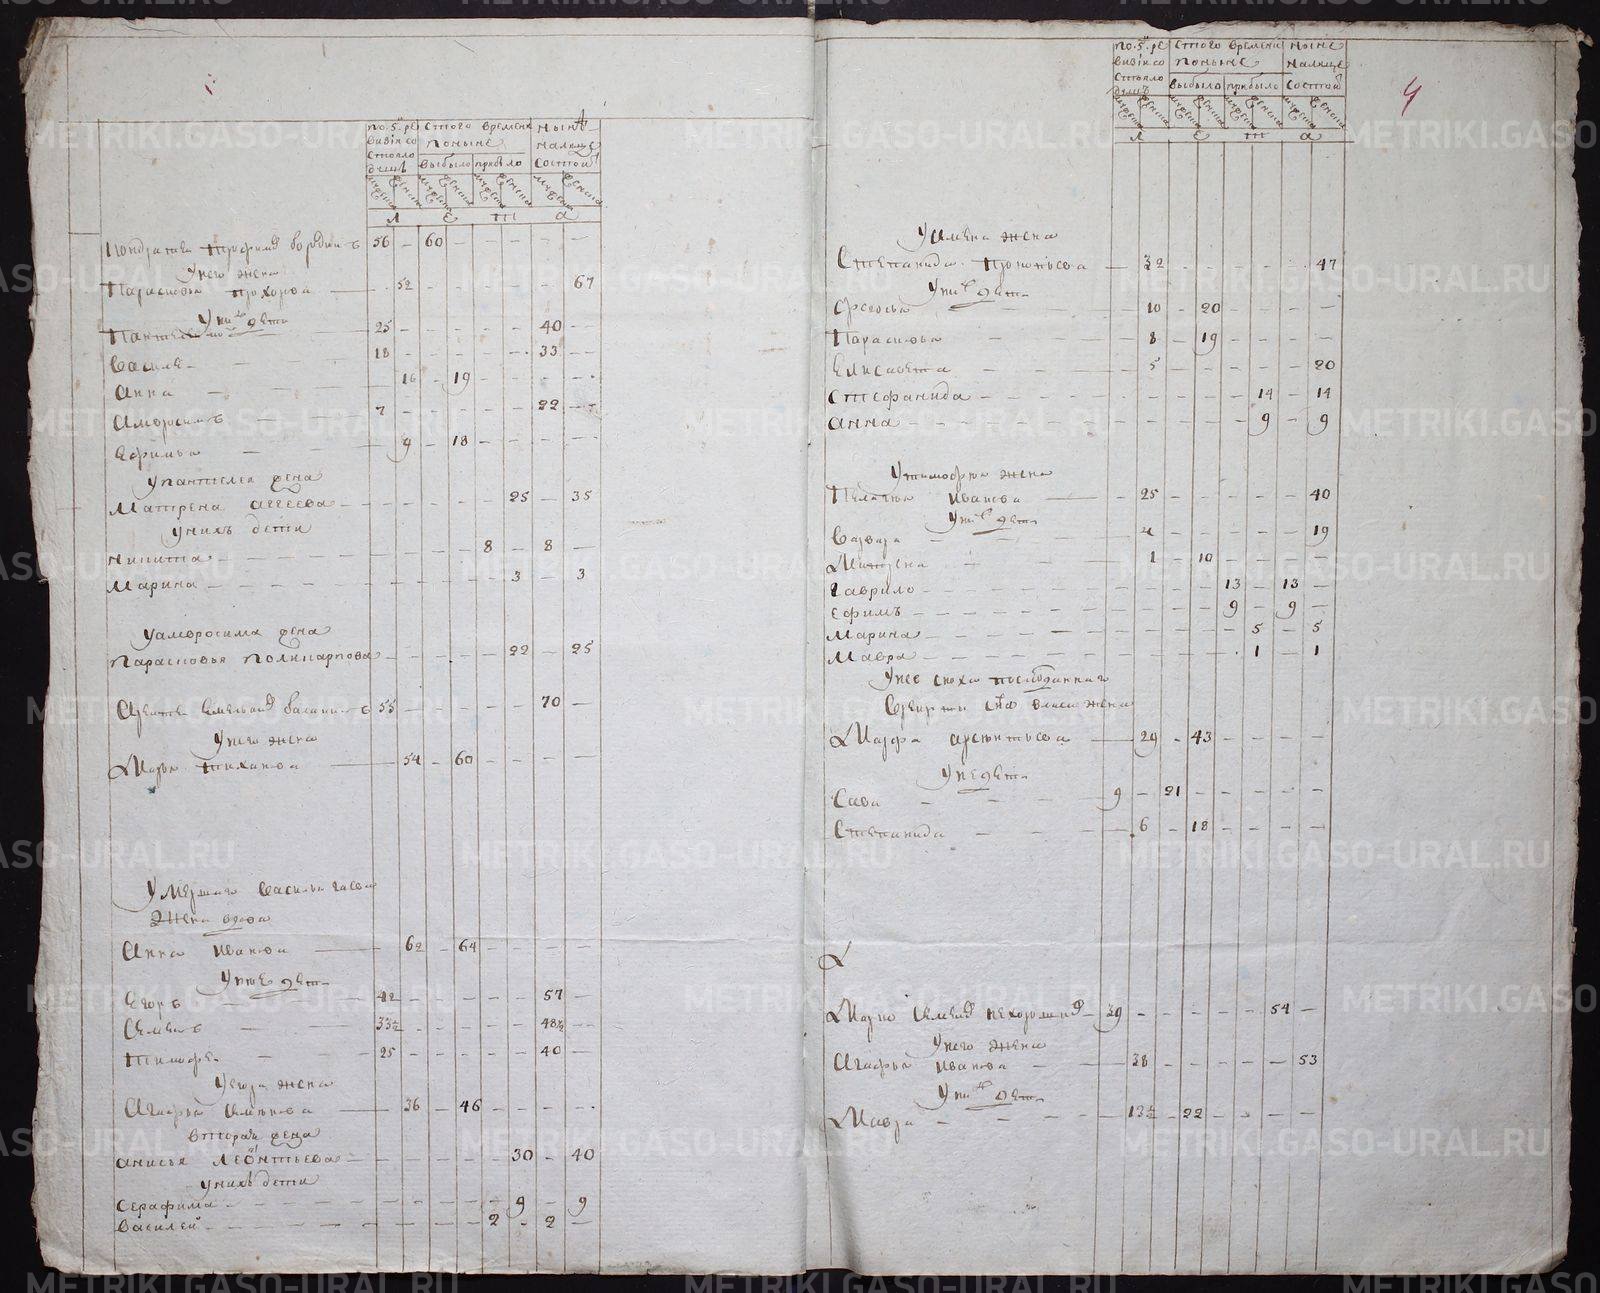 по. 5й ре
визіи со
стояло
душъ
стого времени
поныне
выбыло прибыло
нынѣ
налице
состой
мужеска женска мужеска женска мужеска женска мужеска женска
л е т а
Кондратеи Трофимов 56 — 60 — — — — —
У него жена
Парасковья Прохорова — 52 — — — — — 67
У них дети
Пантелеимон 25 — — — — 40 — —
Василеи — 18 — — — — 33 — —
Анна — 16 — 19 — — — —
Амвросимъ — 7 — — — — 22 — —
Ефимья — 9 — 18 — — — —
У Пантелея жена
Матрена Аггеева — — — — — 25 — 35
у нихъ дети
Никита — — — — — 8 — 8 —
Марина — — — — — 3 — 3
У Амвросима жена
Парасковья Поликарпова — — — — 22 — 25
55 — — — — — 70 —
У него жена
Марья Тиханова — 54 — 60 — — — —
Умершаго Василья
жена вдова
Анна Иванова — 62 — 64 — — — —
У нее дети
Егоръ — 42 — — — — — 57 —
Семенъ — 33½ — — — — — 48½ —
Тимофеи — 25 — — — — — 40 —
У Егора жена
Агафья Семенова — 36 — 46 — — — —
вторая жена
Анисья Леонтьева — — — — — 30 — 40
у нихъ дети
Серафима — — — — — 9 — 9
Василей — — — — — 2 — 2 —
4
по. 5й ре
визіи со
стояло
душъ
стого времени
поныне
выбыло прибыло
ныне
налице
состой
мужеска женска мужеска женска мужеска женска мужеска женска
л е т а
У Семена жена
Степанида Прокопьева — 32 — — — — — 47
У них дети
Федосья — 10 — 20 — — — —
Парасковья — 8 — 19 — — — —
Елисавета — 5 — — — — — 20
Стефанида — — — — — 14 — 14
Анна — — — — — 9 — 9
У Тимофея жена
Пелагея Иванова — 25 — — — — — 40
У них дети
Варвара — 4 — — — — — 19
Матрена — 1 — 10 — — — —
Гаврило — — — — — 13 — 13 —
Ефимъ — — — — — 9 — 9 —
Марина — — — — — 5 — 5
Мавра — — — — — 1 — 1
У нее сноха
жена
Марфа Арсентьева — 29 — 43 — — — —
У нее дети
Сава — 9 — 21 — — — —
Степанида — 6 — 18 — — — —
Марко Семенов 39 — — — — — 54 —
У него жена
Агафья Иванова — 38 — — — — — 53
У них дети
Мавра — 13½ — 22 — — — —
METRIKI.GASO-URAL.RU